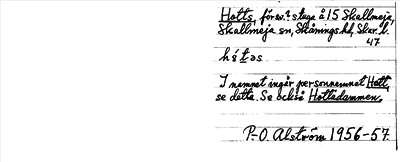 Hotts, försv.? stuga å 15 Skallmeja,
Skallmeja sn, Skånings hd, Skar. l.
47
hótəs
I namnet ingår personnamnet Hott,
se detta. Se också Hottadammen.
P.-O. Alström 1956-57.